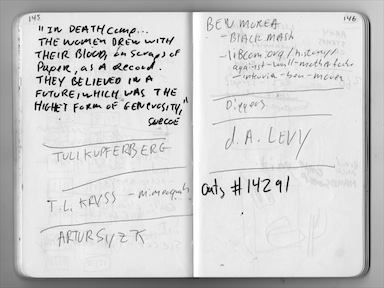 145
"IN DEATH camp...
THE WOMEN DREW WITH
THEIR BLOOD, on Scraps of
Paper, as A Record.
THEY BELIEVED IN A
FUTURE, WHICH WAS THE
HIGHEST FORM OF GENEROSITY,"
SURCOE
TULI KUPFERBERG
T.L. KRYSS - mimeograph
ARTUR SYZK
146
BEN MOREA
- BLACK MASK
- libcom.org/history/
against-wall-motherfucker
-interview-ben-morea
Diggers
d.A. LEVY
Cuts #14291